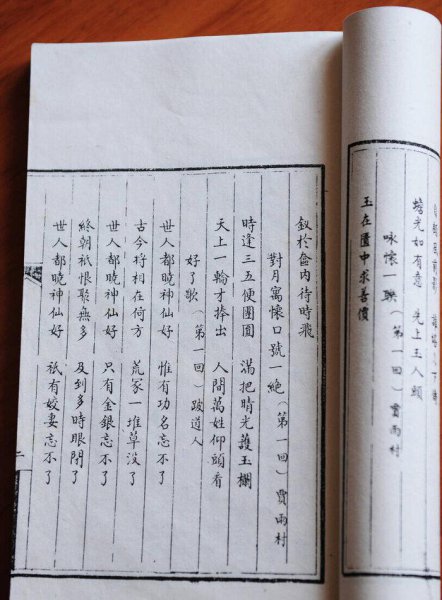 蟾光如有意 先上玉人頭
咏懷一聯（第一回）賈雨村
玉在匱中求善價
釵於奩內待時飛
對月寓懷口號一絕（第一回）賈雨村
時逢三五便團圓 滿把晴光護玉欄
天上一輪才捧出 人間萬姓仰頭看
好了歌（第一回）跛道人
世人都曉神仙好 惟有功名忘不了
古今将相在何方 荒冢一堆草沒了
世人都曉神仙好 只有金銀忘不了
終朝衹恨聚無多 及到多時眼閉了
世人都曉神仙好 衹有姣妻忘不了
二